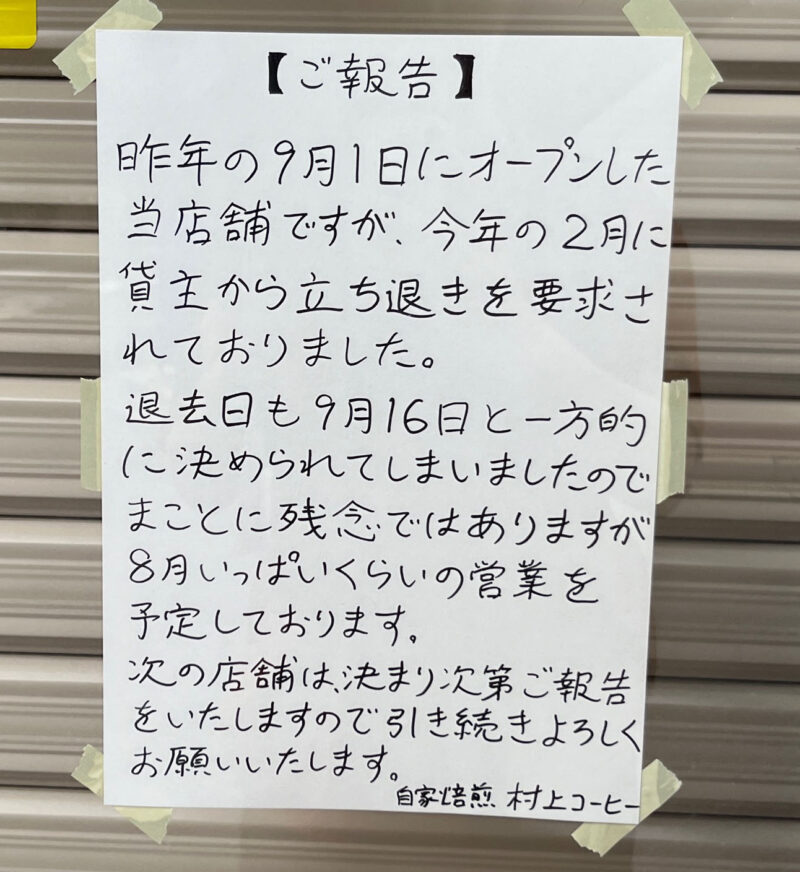 【ご報告】
昨年の9月1日にオープンした
当店舗ですが、今年の2月に
貸主から立ち退きを要求さ
れておりました。
退去日も9月16日と一方的
に決められてしまいましたので
まことに残念ではありますが
8月いっぱいくらいの営業を
予定しております。
次の店舗は、決まり次第ご報告
をいたしますので引き続きよろしく
お願いいたします。
自家焙煎 村上コーヒー